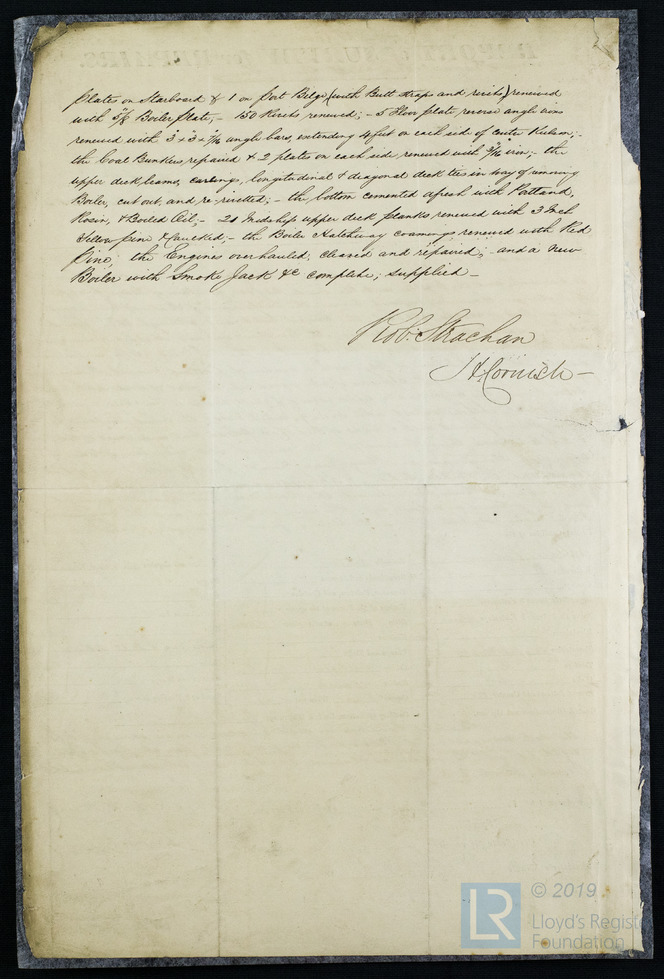 plates on Starboard & 1 on Port Bilge (with Butt straps and rivets) renewed
with 5/8 Boiler plate; - 150 Rivets renewed; - 5 Floor plate reverse angle irons
renewed with 3 x 3 x 7/16 angle bars, extending 4 feet on each side of Center Keelson; -
the Coal Bunkers repaired & 2 plates on each side renewed with 3/16 iron; - the
upper deck beams, carlings, longitudinal & diagonal deck ties in way of unning
Boiler, cut out, and re-rivetted; - the bottom cemented afresh with Portland,
Rosin, & Boiled Oil; - 20 Midship upper deck planks renewed with 3 Inch
Yellow pine & Caulked; - the Boiler Hatchway coamings renewed with Red
Pine; the Engines overhauled, cleaned and repaired; and a new
Boiler with Smoke Jack &c complete; supplied -
Rob. Strachan
J H Cornish -
LR
© 2019
Lloyd's Registe
Foundation